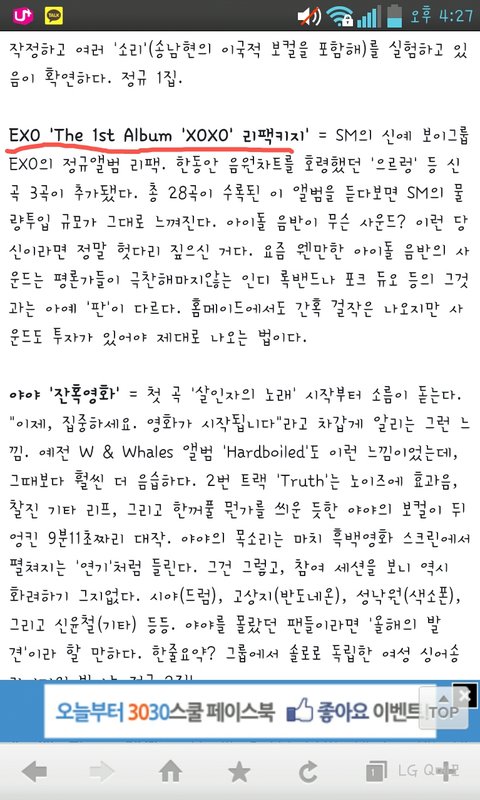 오후 4:27
작정하고 여러 '소리'(송남현의 이국적 보컬을 포함해)를 실험하고 있
음이 확연하다. 정규 1집.
EXO 'The 1st Album 'XOXO' 리팩키지' = SM의 신예 보이그룹
EXO의 정규앨범 리팩. 한동안 음원차트를 호령했던 '으르렁' 등 신
곡 3곡이 추가됐다. 총 28곡이 수록된 이 앨범을 듣다보면 SM의 물
량투입 규모가 그대로 느껴진다. 아이돌 음반이 무슨 사운드? 이런 당
신이라면 정말 헛다리 짚으신 거다. 요즘 웬만한 아이돌 음반의 사
운드는 평론가들이 극찬해마지않는 인디 록밴드나 포크 듀오 등의 그것
과는 아예 '판'이 다르다. 홈메이드에서도 간혹 걸작은 나오지만 사
운드도 투자가 있어야 제대로 나오는 법이다.
야야 '잔혹영화' = 첫 곡 '살인자의 노래' 시작부터 소름이 돋는다.
"이제, 집중하세요. 영화가 시작됩니다"라고 차갑게 알리는 그런 느
낌. 예전 W & Whales 앨범 'Hardboiled'도 이런 느낌이었는데,
그때보다 훨씬 더 음습하다. 2번 트랙 'Truth'는 노이즈에 효과음,
찰진 기타 리프, 그리고 한꺼풀 뭔가를 씌운 듯한 야야의 보컬이 뒤
엉킨 9분11초짜리 대작. 야야의 목소리는 마치 흑백영화 스크린에서
펼쳐지는 '연기'처럼 들린다. 그건 그렇고, 참여 세션을 보니 역시
화려하기 그지없다. 시야(드럼), 고상지(반도네온), 성낙원(색소폰),
그리고 신윤철(기타) 등등. 야야를 몰랐던 팬들이라면 '올해의 발
견'이라 할 만하다. 한줄요약? 그룹에서 솔로로 독립한 여성 싱어송
오늘부터 3030스쿨 페이스북 좋아요 이벤트!
TOP
1
LG Q